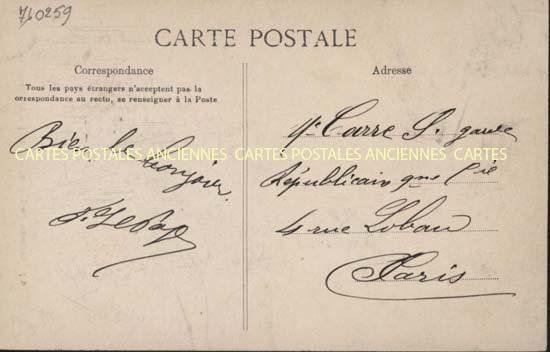 760259
CARTE POSTALE
Correspondance
Tous les pays étrangers n'acceptent pas la
correspondance au recto, se renseigner à la Poste
Adresse
Bien le bonjour
CARTES POSTALES ANCIENNES CARTES POSTALES ANCIENNES CARTES
Mr Carre S. garde
Républicain que Cie
4 rue Lobau
Paris